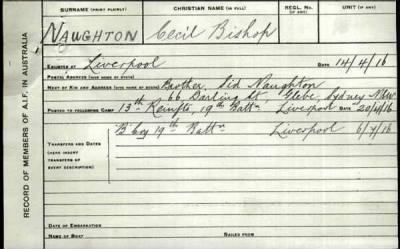 SURNAME (PRINT PLAINLY) CHRISTIAN NAME (IN FULL) REGL. No. OF UNIT
NAUGHTON Cecil Bishop
ENLISTED AT Liverpool DATE 14/4/16
POSTAL ADDRESS (WITH NAME OF STATE)
NEXT OF KIN AND ADDRESS (WITH NAME OF STATE) Brother, Sid Naughton
66 Darling St, Glebe, Sydney NSW
POSTED TO FOLLOWING CAMP 13th Reinfts, 19th Battn Liverpool DATE 20/4/16
B Coy 19th Battn Liverpool 6/7/16
TRANSFERS AND DATES
(HERE INSERT
TRANSFERS OF
EVERY DESCRIPTION)
DATE OF EMBARKATION
NAME OF BOAT SAILED FROM
RECORD OF MEMBERS OF A.I.F. IN AUSTRALIA